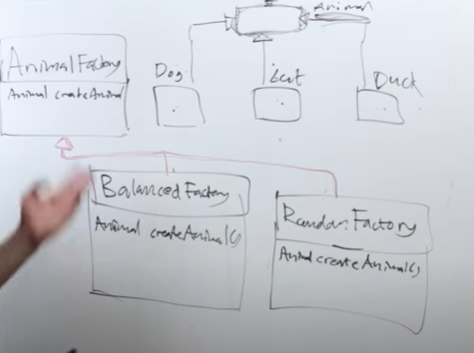 Animal
AnimalFactory
Animal createAnimal
Dog
Cat
Duck
BalancedFactory
Animal createAnimal()
RandomFactory
Animal createAnimal()